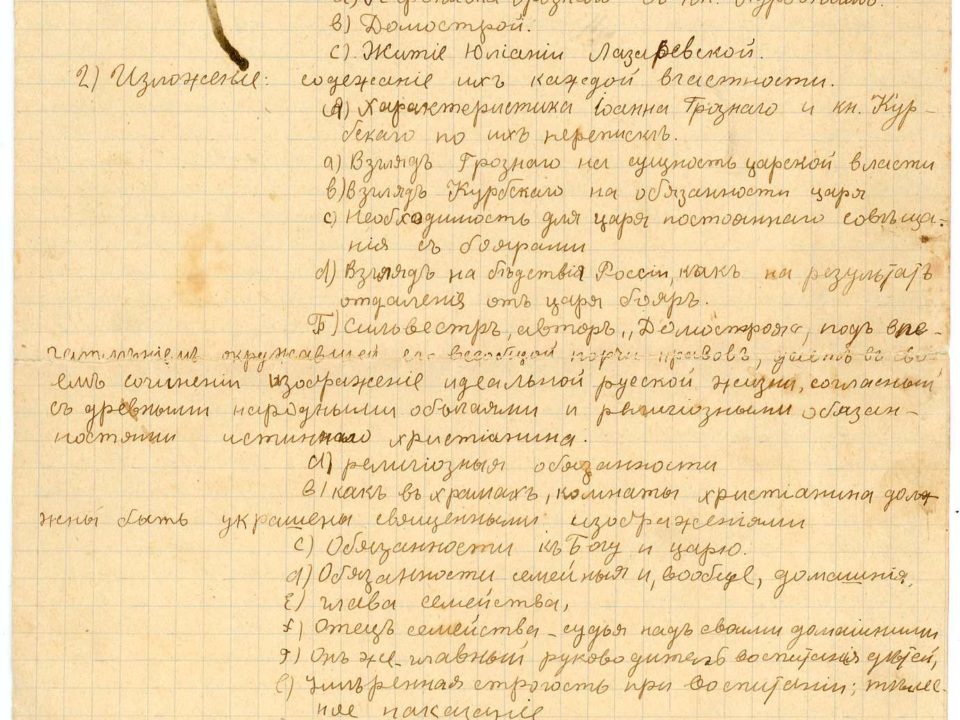 в) Домострой.
с) Житіе Юліаніи Лазаревской.
2) Изложеніе: содежаніе ихъ каждой вчастности.
А) Характеристика Іоанна Грознаго и кн. Кур-
бскаго по ихъ перепискѣ.
а) Взглядъ Грознаго на сущность царской власти
в) Взглядъ Курбскаго на обязанности царя
с) Необходимость для царя постояннаго совѣща-
нія съ боярами
d) Взглядъ на бѣдствія Россіи, какъ на результатъ
отдаленія отъ царя бояр.
Б) Сильвестръ, авторъ „Домостроя“, подъ впе-
чатлѣніемъ окружавшей его всеобщей порчи нравовъ, въ сво-
емъ сочиненіи изображеніе идеальной русской жизни, согласный
съ древными народными обычаями и религіозными обязан-
ностями истиннаго христіанина.
а) религіозныя обязанности
в) какъ въ храмахъ, комнаты христіанина долж
жны быть украшены священными изображеніями
с) Обязанности къ Богу и царю.
d) Обязанности семейныя и, вообще, домашнія,
е) глава семейства,
f) Отецъ семейства - судья надъ своими домашними
g) Онъ же - главный руководитель воспитанія дѣтей,
е) Умѣренная строгость при воспитаніи; тѣлес-
ное наказаніе